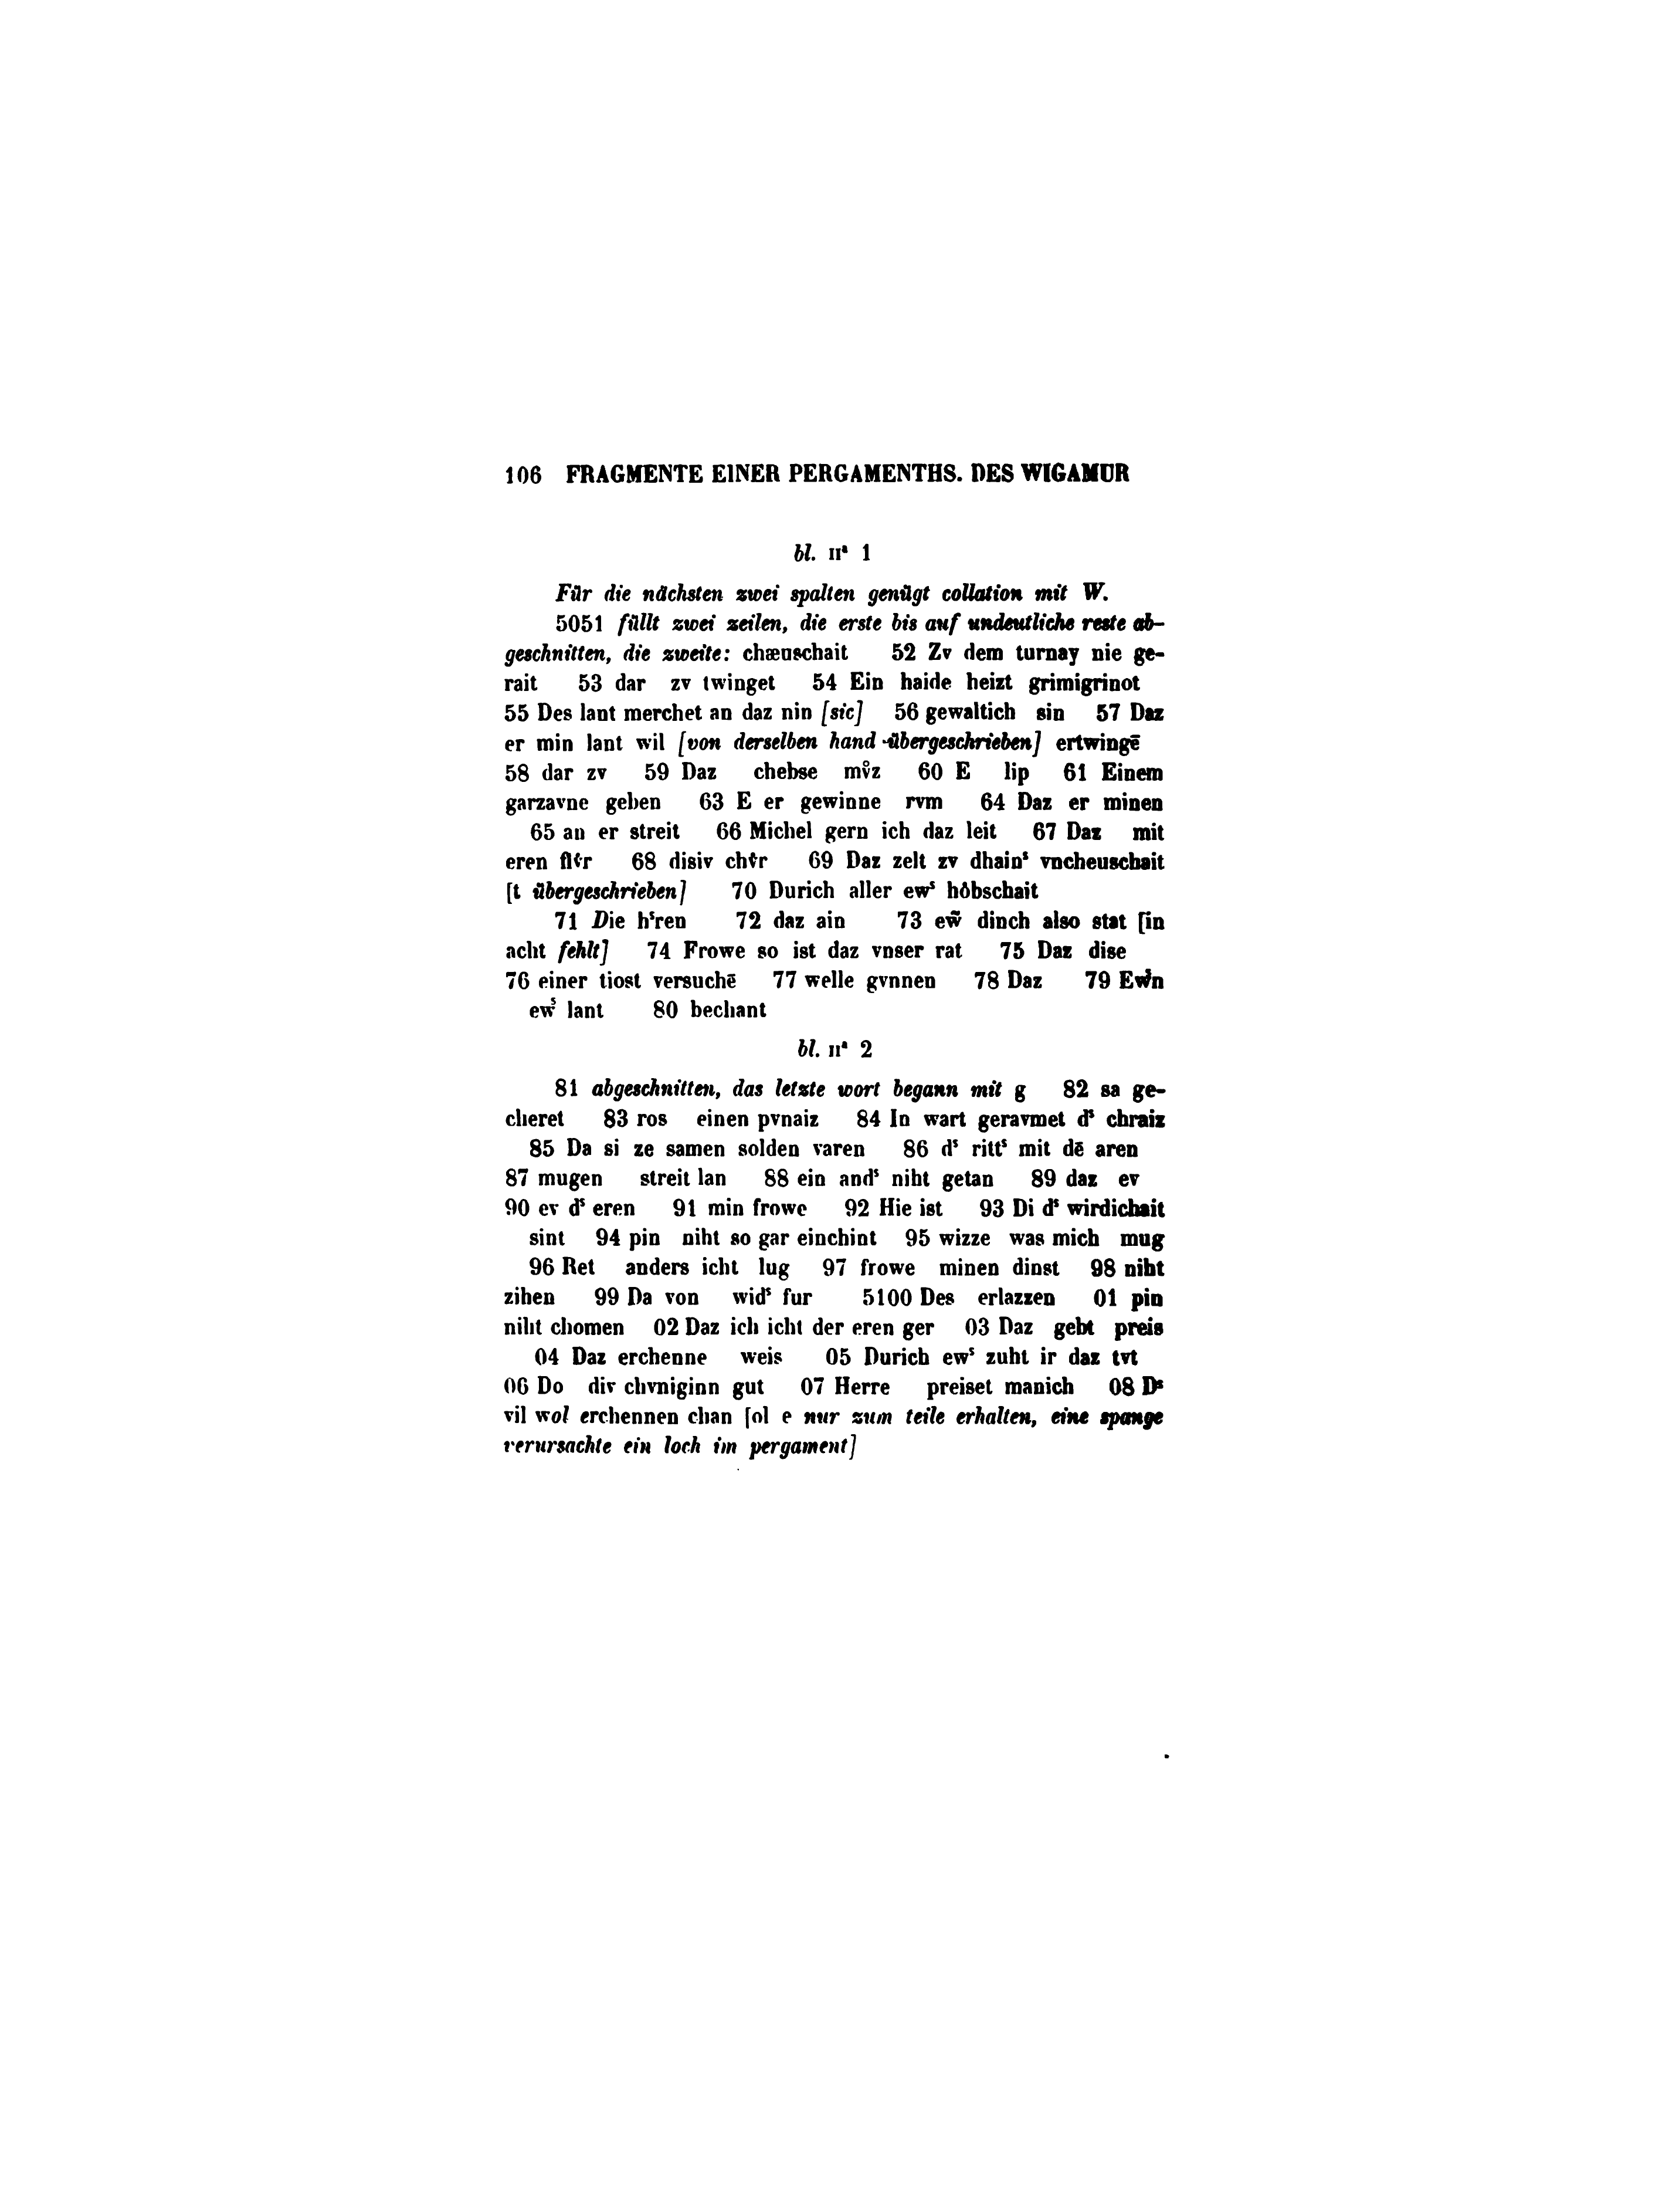 106 FRAGMENTE EINER PERGAMENTHS. DES WIGAMUR
bl. IIᵃ 1
Für die nächsten zwei spalten genügt collation mit W.
5051 füllt zwei zeilen, die erste bis auf undeutliche reste ab-
geschnitten, die zweite: chæuschait 52 Zv dem turnay nie ge-
rait 53 dar zv twinget 54 Ein haide heizt grimigrinot
55 Des lant merchet an daz nin [sic] 56 gewaltich sin 57 Daz
er min lant wil [von derselben hand übergeschrieben] ertwingē
58 dar zv 59 Daz chebse mv̊z 60 E lip 61 Einem
garzavne geben 63 E er gewinne rvm 64 Daz er minen
65 an er streit 66 Michel gern ich daz leit 67 Daz mit
eren 68 disiv 69 Daz zelt zv dhainˢ vncheuschait
[t übergeschrieben] 70 Durich aller ewˢ hôbschait
71 Die hˢren 72 daz ain 73 ew̃ dinch also stat [in
acht fehlt] 74 Frowe so ist daz vnser rat 75 Daz dise
76 einer tiost versuchē 77 welle gvnnen 78 Daz 79
ewˢ lant 80 bechant
bl. IIᵃ 2
81 abgeschnitten, das letzte wort begann mit g 82 sa ge-
cheret 83 ros einen pvnaiz 84 In wart geravmet dˢ chraiz
85 Da si ze samen solden varen 86 dˢ rittˢ mit dē aren
87 mugen streit lan 88 ein andˢ niht getan 89 daz ev
90 ev dˢ eren 91 min frowe 92 Hie ist 93 Di dˢ wirdichait
sint 94 pin niht so gar einchint 95 wizze was mich mug
96 Ret anders icht lug 97 frowe minen dinst 98 niht
zihen 99 Da von widˢ fur 5100 Des erlazzen 01 pin
niht chomen 02 Daz ich icht der eren ger 03 Daz gebt preis
04 Daz erchenne weis 05 Durich ewˢ zuht ir daz tvt
06 Do div chvniginn gut 07 Herre preiset manich 08 Dˢ
vil wol erchennen chan [ol e nur zum teile erhalten, eine spange
verursachte ein loch im pergament]